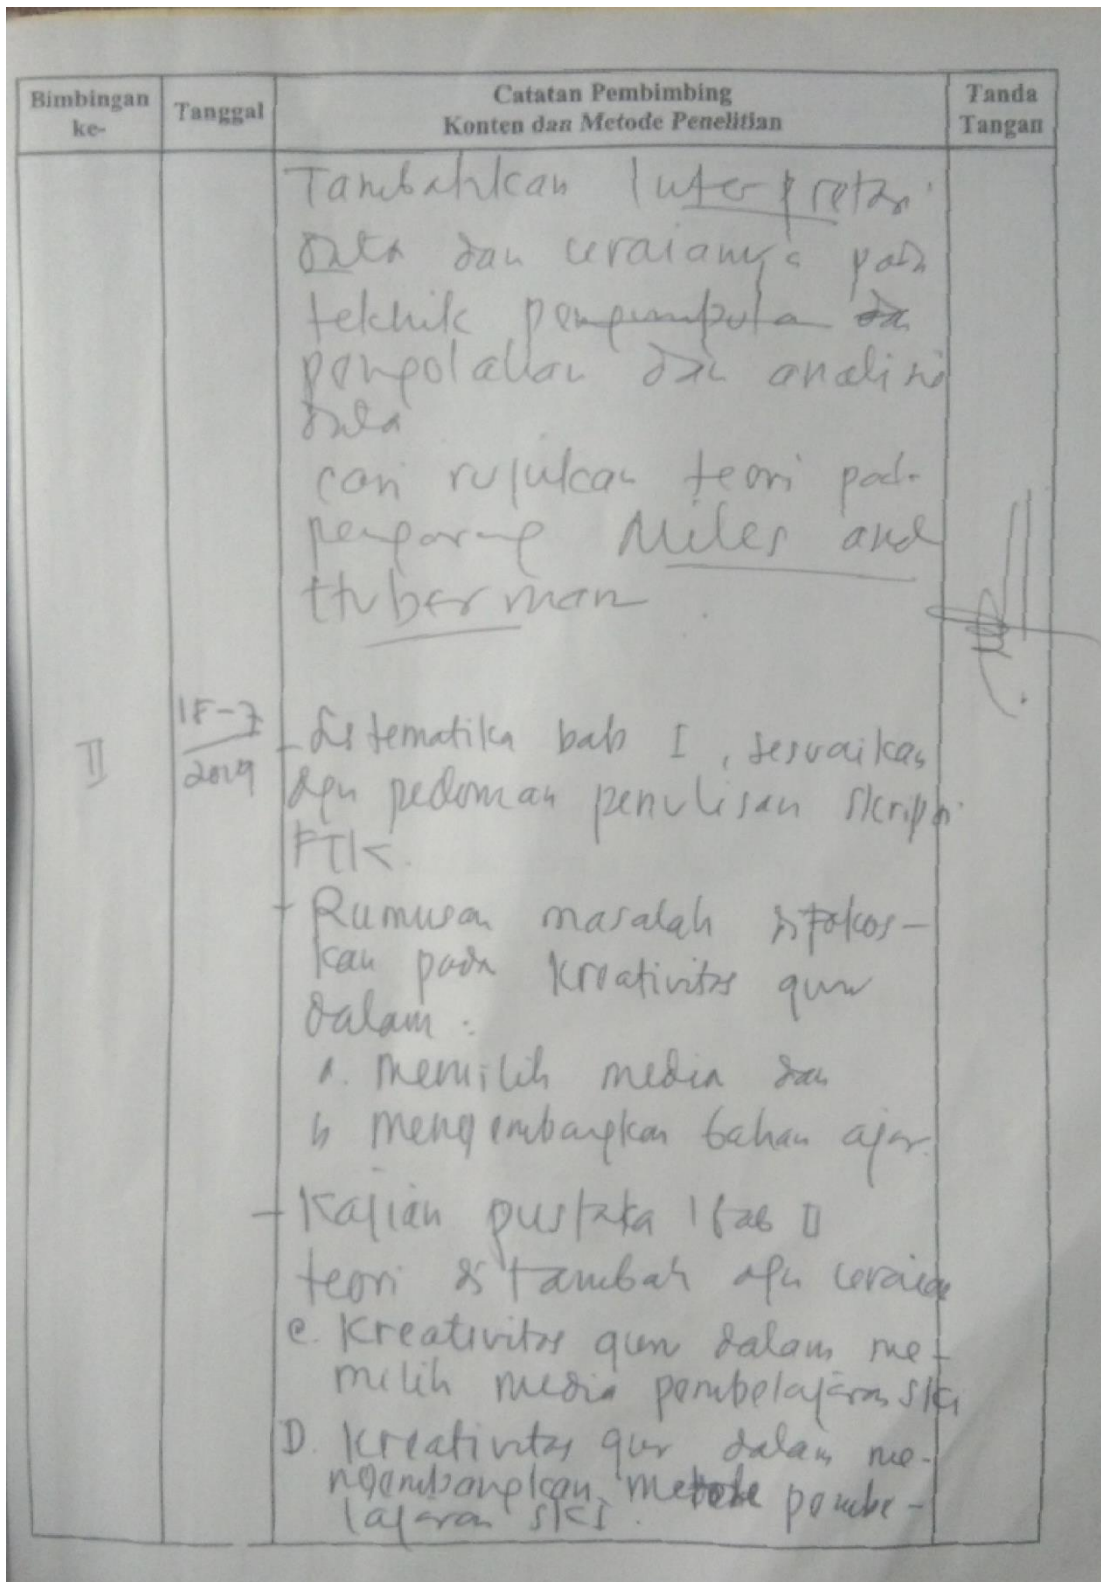 Bimbingan ke-
Tanggal
Catatan Pembimbing
Konten dan Metode Penelitian
Tanda Tangan
Tambahkan Interpretasi
data dan uraiannya pada
tekhik pengumpula da
pengolahan dan analisis
data
cari rujukan teori pada
pengarang Miles and
Huberman
II
18-7
2019
- Sistematika bab I, sesuaikan
dgn pedoman penulisan skripsi
FTK.
- Rumusan masalah difokos-
kan pada kreativitas guru
dalam :
a. memilih media dan
b mengembangkan bahan ajar.
- Kajian pustaka / bab II
teori di tambah dgn uraian
C. Kreativitas guru dalam me-
milih media pembelajaran SKI
D. Kreativitas guru dalam me-
ngembangkan metode pembe-
lajaran SKI.